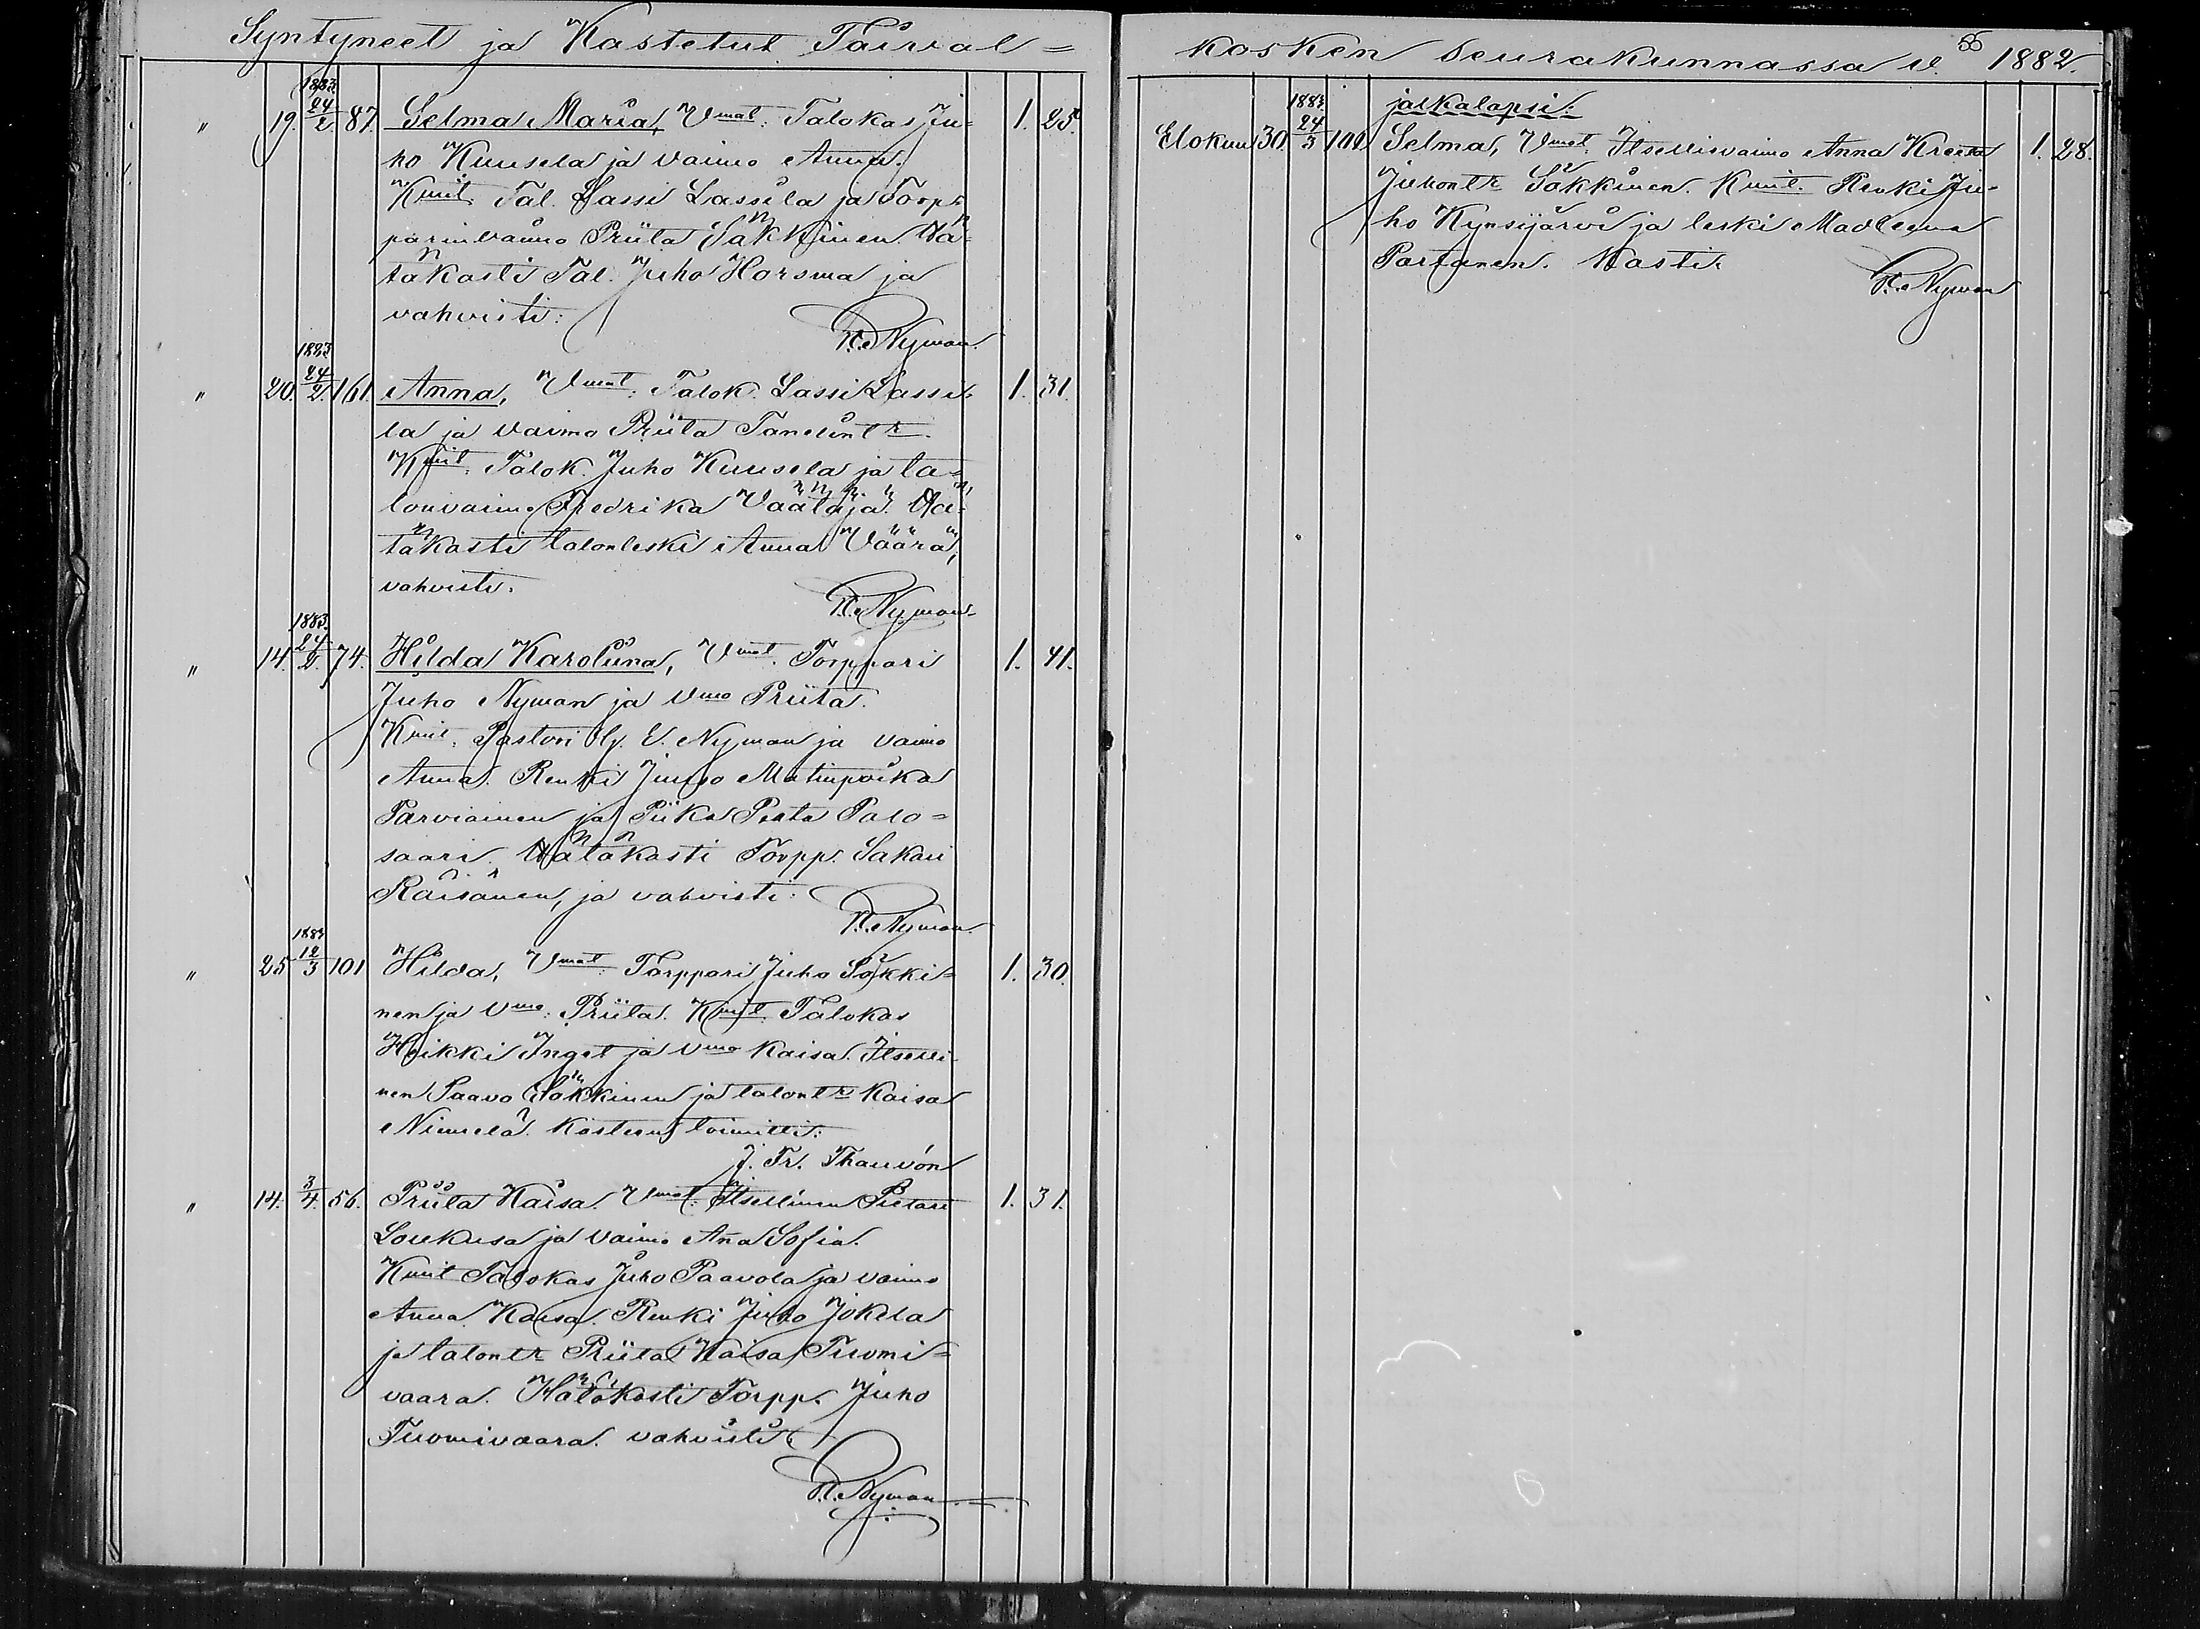 Syntyneet ja Kastetut Taival=
" 19. 1883. 24/2 87. Selma Maria, Vmat: Talokas Ju= 1. 25.
ho Kuusela ja vaimo Anna.
Kmit. Tal. Lassi Lassila ja Torp=
parinvaimo Priita Säkkinen. Hä=
täkasti Tal. Juho Horsma ja
vahvisti:
K. Nyman.
" 20. 1883 24/2. 161. Anna, Vmat: Talok. Lassi Lassi= 1. 31.
la ja vaimo Priita Tanelintr.
Kmit. Talok. Juho Kuusela ja ta=
lonvaimo Fredrika Väätäjä. Hä=
täkasti talonleski Anna Väärä,
vahvisti.
K. Nyman
" 14. 1883. 24/2. 74. Hilda Karoliina, Vmat. Torppari 1. 41.
Juho Nyman ja Vmo Priita.
Kmit. Pastori E. Nyman ja vaimo
Anna. Renki Juho Matinpoika
Parviainen ja Piika Palo=
saari. Hätäkasti Torpp. Sakari
Räisänen, ja vahvisti:
K. Nyman.
" 25 1883 12/3 101 Hilda, Vmat: Torppari Juho Säkki= 1. 30.
nen ja Vmo: Priita. Kmit. Talokas
Heikki Inget ja Vmo Kaisa. Itselli=
nen Paavo Säkkinen ja talontr Kaisa
Niemelä. Kasteen toimitti:
J. Fr. Thauvón
" 14. 3/4. 56. Priita Kaisa. Vmat: Itsellinen Pietari 1. 31.
Loukusa ja vaimo Ana Sofia.
Kmit Talokas Juho Paavola ja vaimo
Anna Kaisa. Renki Juho Jokela
ja talontr Priita Kaisa Tuomi=
vaara. Hätäkasti Torpp. Juho
Tuomivaara. vahvisti
K. Nyman
kosken seurakunnassa v. 1882.
55
jalkalapsi:
Elokuu 30. 1883 24/3 101 Selma, Vmat: Itsellisvaimo Anna Kreeta 1. 28.
Juhontr Säkkinen. Kmit. Renki Ju=
ho Kynsijärvi ja leski Madleena
Partanen. Kasti:
K. Nyman